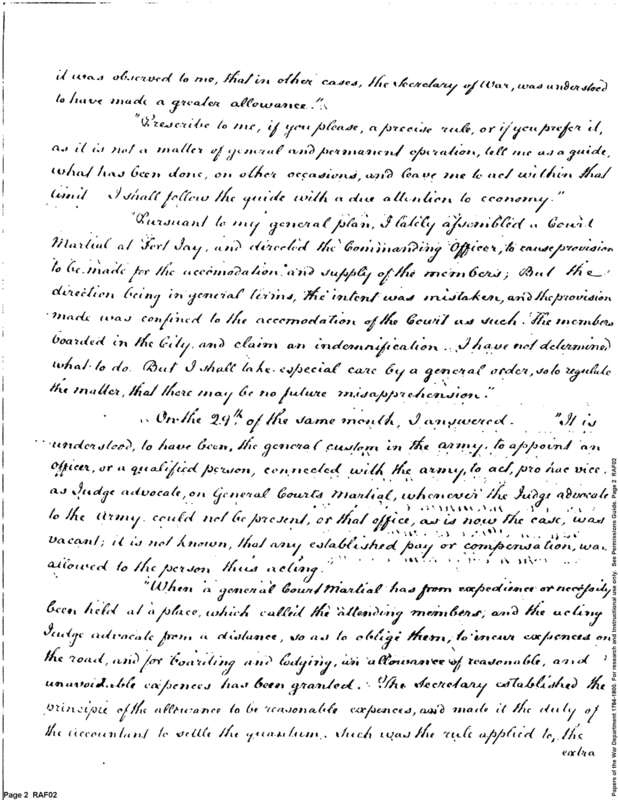 it was observed to me, that in other cases, the Secretary of War, was understood
to have made a greater allowance."
"Prescribe to me, if you please, a precise rule, or if you prefer it,
as it is not a matter of general and permanent operation, tell me as a guide,
what has been done, on other occasions, and leave me to act within that
limit I shall follow the guide with a due attention to economy."
"Pursuant to my general plan, I lately assembled a Court
Martial at Fort Jay, and directed the Commanding Officer, to cause provision
to be made for the accomodation and supply of the members; But the
direction being in general terms, the intent was mistaken, and the provision
made was confined to the accomodation of the Court as such. The members
boarded in the City and claim an indemnification. I have not determined
what to do. But I shall take especial care by a general order, so to regulate
the matter, that there may be no future misapprehension."
On the 29th of the same month, I answered. "It is
understood, to have been, the general custom in the army, to appoint an
officer, or a qualified person, connected with the army, to act, pro hac vice,
as Judge advocate, on General Courts Martial, whenever the Judge advocate
to the Army could not be present, or that office, as is now the case, was
vacant; it is not known, that any established pay or compensation, was
allowed to the person thus acting."
"When a general Court Martial has from expedience or necessity
been held at a place, which called the attending members, and the acting
Judge advocate from a distance, so as to oblige them, to incur expences on
the road, and for boarding and lodging, an allowance of reasonable, and
unavoidable expences has been granted. The Secretary established the
principle of the allowance to be reasonable expences, and made it the duty of
the accountant to settle the quantum. Such was the rule applied to, the
extra
Page 2 RAF02
Papers of the War Department 1784-1800. For research and instructional use only. See Permissions Guide. Page 2 RAF02